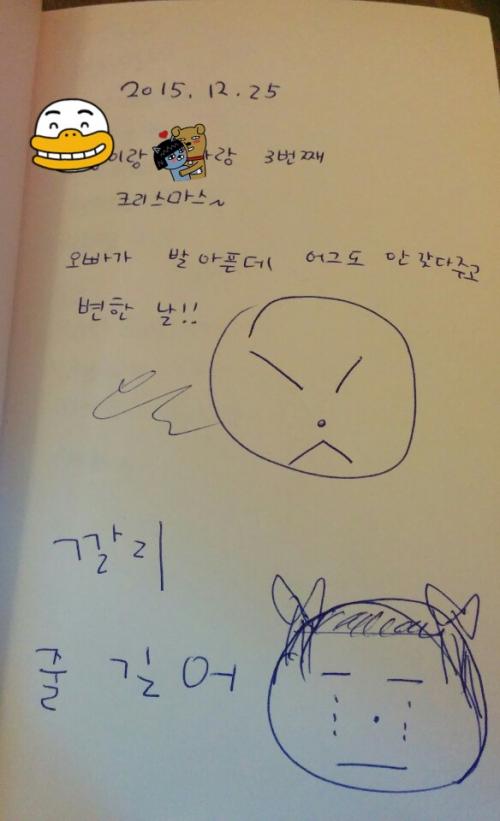 2015. 12. 25
이랑 랑 3번째
크리스마스~
오빠가 발 아픈데 어그도 안 갖다주고
변한 날!!
깔리
줄 길어